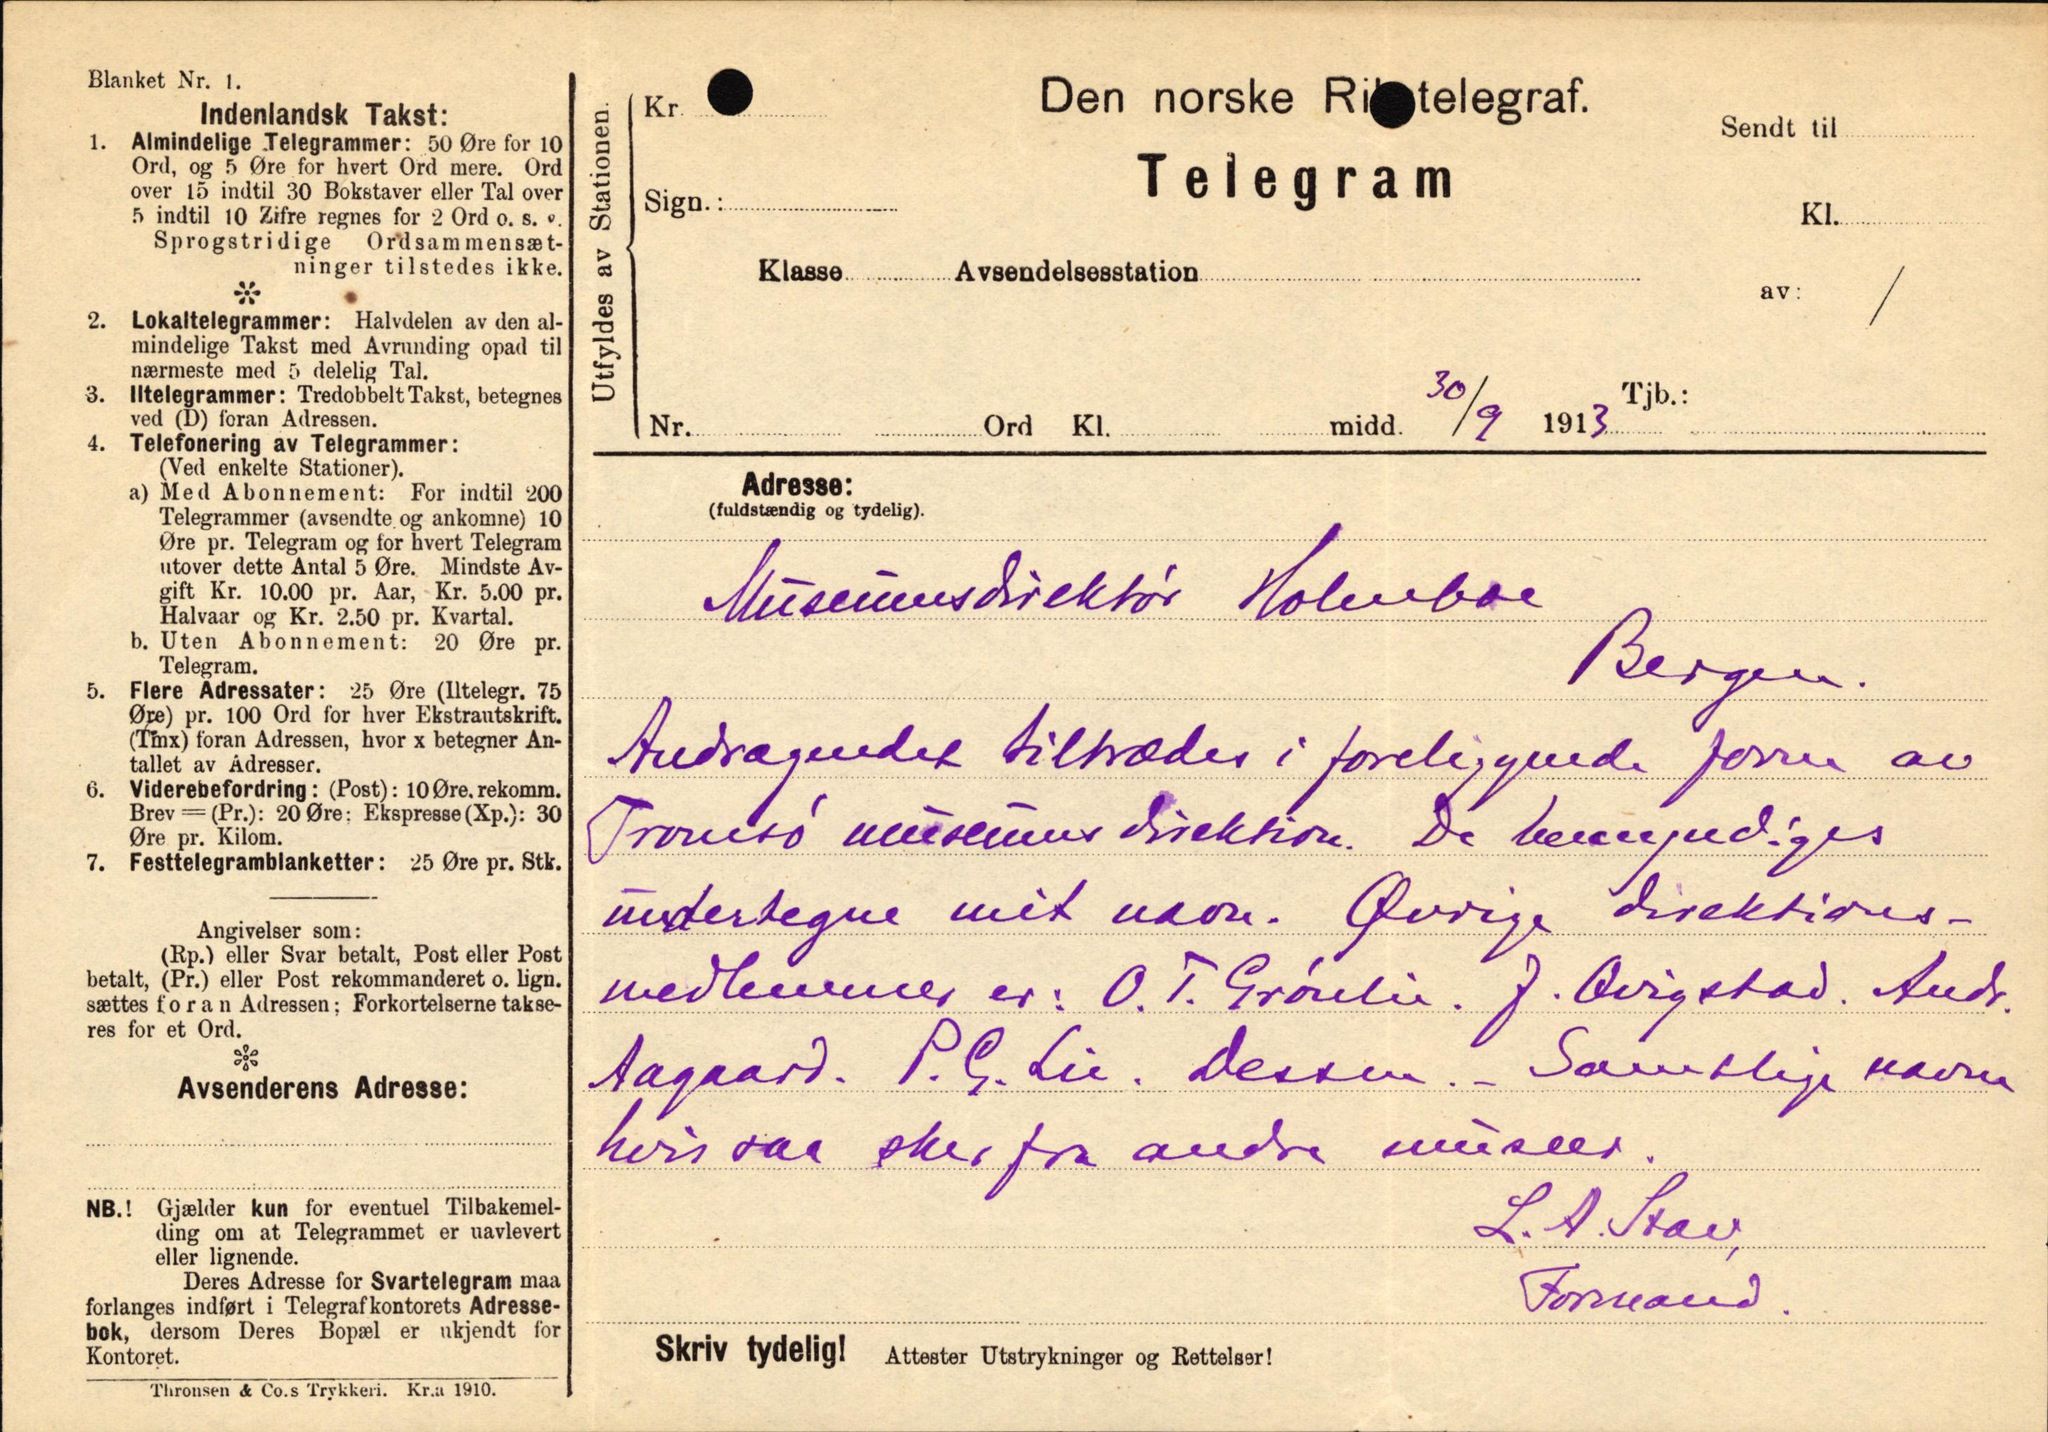 Blanket Nr. 1.
Indenlandsk Takst:
1. Almindelige Telegrammer: 50 Øre for 10
Ord, og 5 Øre for hvert Ord mere. Ord
over 15 indtil 30 Bokstaver eller Tal over
5 indtil 10 Zifre regnes for 2 Ord o. s. v.
Sprogstridige Ordsammensæt-
ninger tilstedes ikke.
2. Lokaltelegrammer: Halvdelen av den al-
mindelige Takst med Avrunding opad til
nærmeste med 5 delelig Tal.
3. Iltelegrammer: Tredobbelt Takst, betegnes
ved (D) foran Adressen.
4. Telefonering av Telegrammer:
(Ved enkelte Stationer).
a) Med Abonnement: For indtil 200
Telegrammer (avsendte og ankomne) 10
Øre pr. Telegram og for hvert Telegram
utover dette Antal 5 Øre. Mindste Av-
gift Kr. 10.00 pr. Aar, Kr. 5.00 pr.
Halvaar og Kr. 2.50 pr. Kvartal.
b. Uten Abonnement: 20 Øre pr.
Telegram.
5. Flere Adressater: 25 Øre (Iltelegr. 75
Øre) pr. 100 Ord for hver Ekstrautskrift.
(Tmx) foran Adressen, hvor x betegner An-
tallet av Adresser.
6. Viderebefordring: (Post): 10 Øre, rekomm.
Brev = (Pr.): 20 Øre; Ekspresse (Xp.): 30
Øre pr. Kilom.
7. Festtelegramblanketter: 25 Øre pr. Stk.
Angivelser som:
(Rp.) eller Svar betalt, Post eller Post
betalt, (Pr.) eller Post rekommanderet o. lign.
sættes foran Adressen; Forkortelserne takse-
res for et Ord.
Avsenderens Adresse:
NB.! Gjælder kun for eventuel Tilbakemel-
ding om at Telegrammet er uavlevert
eller lignende.
Deres Adresse for Svartelegram maa
forlanges indført i Telegrafkontorets Adresse-
bok, dersom Deres Bopæl er ukjendt for
Kontoret.
Thronsen & Co.s Trykkeri. Kr.a 1910.
Utfyldes av Stationen.
Kr.
Den norske Rikstelegraf.
Sendt til
Telegram
Sign.:
Kl.
Klasse Avsendelsesstation
av: /
Nr. Ord Kl. midd. 30/9 1913 Tjb.:
Adresse:
(fuldstændig og tydelig).
Museumsdirektør Holmboe
Bergen.
Andragendet tiltrædes i foreliggende form av
Tromsø museums direktion. De bemyndiges
undertegne mit navn. Øvrige direktions-
medlemmer er: O. T. Grønlie. J. Qvigstad. Andr.
Aagaard. P. G. Lie. Dessen. – Samtlige navne
hvis saa sker fra andre museer.
L. A. Stav,
Formand.
Skriv tydelig! Attester Utstrykninger og Rettelser!